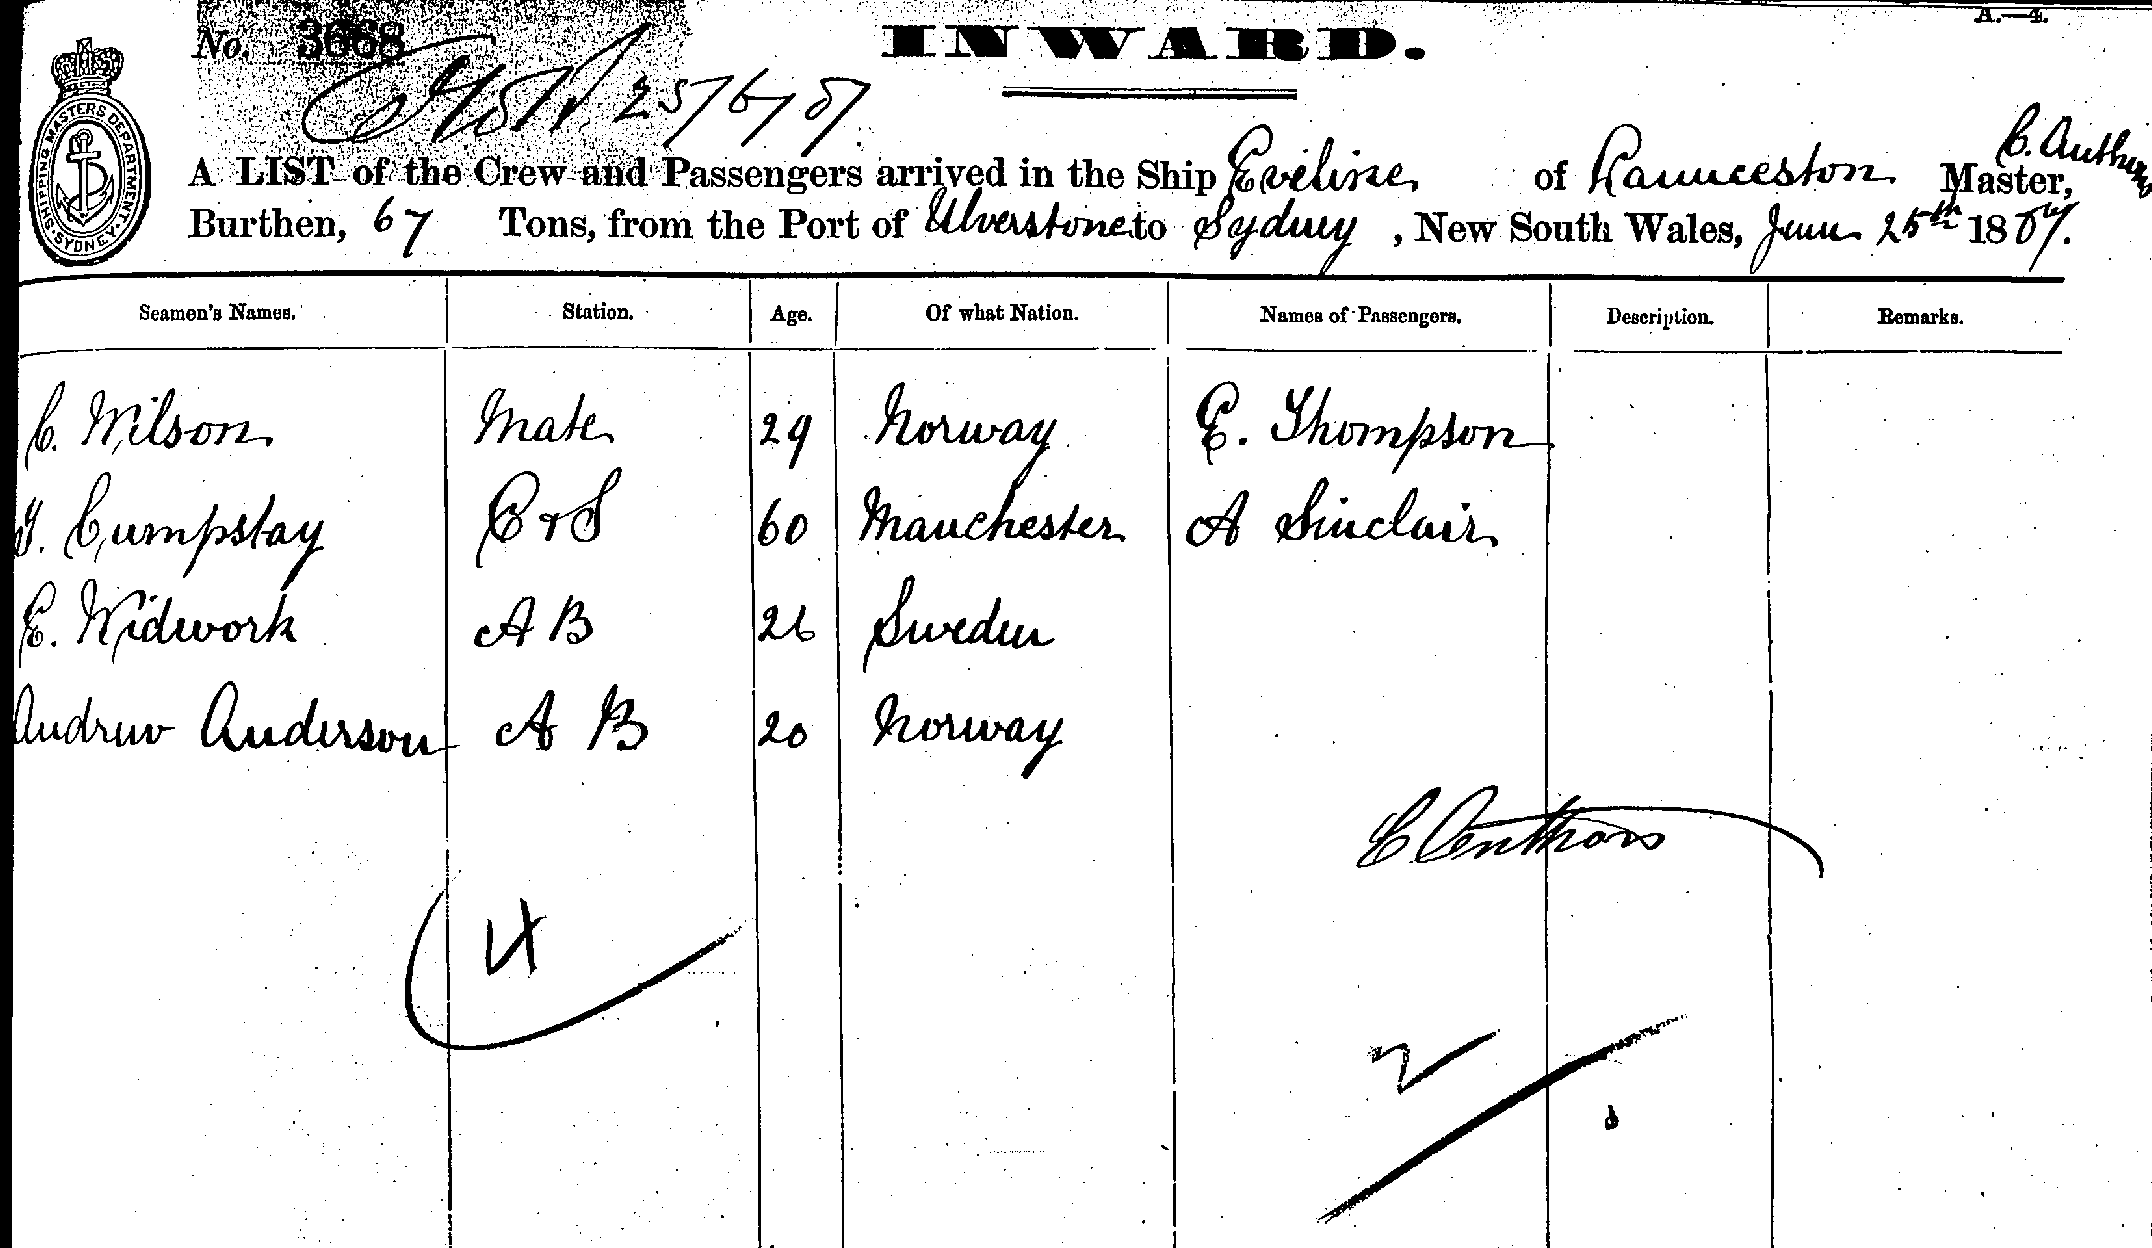 A.—4.
No. 3668
INWARD.
25/6/87
SHIPPING MASTERS DEPARTMENT SYDNEY
C. Anthon
A LIST of the Crew and Passengers arrived in the Ship Eveline of Launceston Master,
Burthen, 67 Tons, from the Port of Ulverstone to Sydney, New South Wales, June 25th 1887.
Seamen's Names. Station. Age. Of what Nation. Names of Passengers. Description. Remarks.
C. Wilson Mate 29 Norway E. Thompson
Cumpstay C & S 60 Manchester A Sinclair
E. Widwork A B 26 Sweden
Andrew Anderson A B 20 Norway
C Anthon
4
2